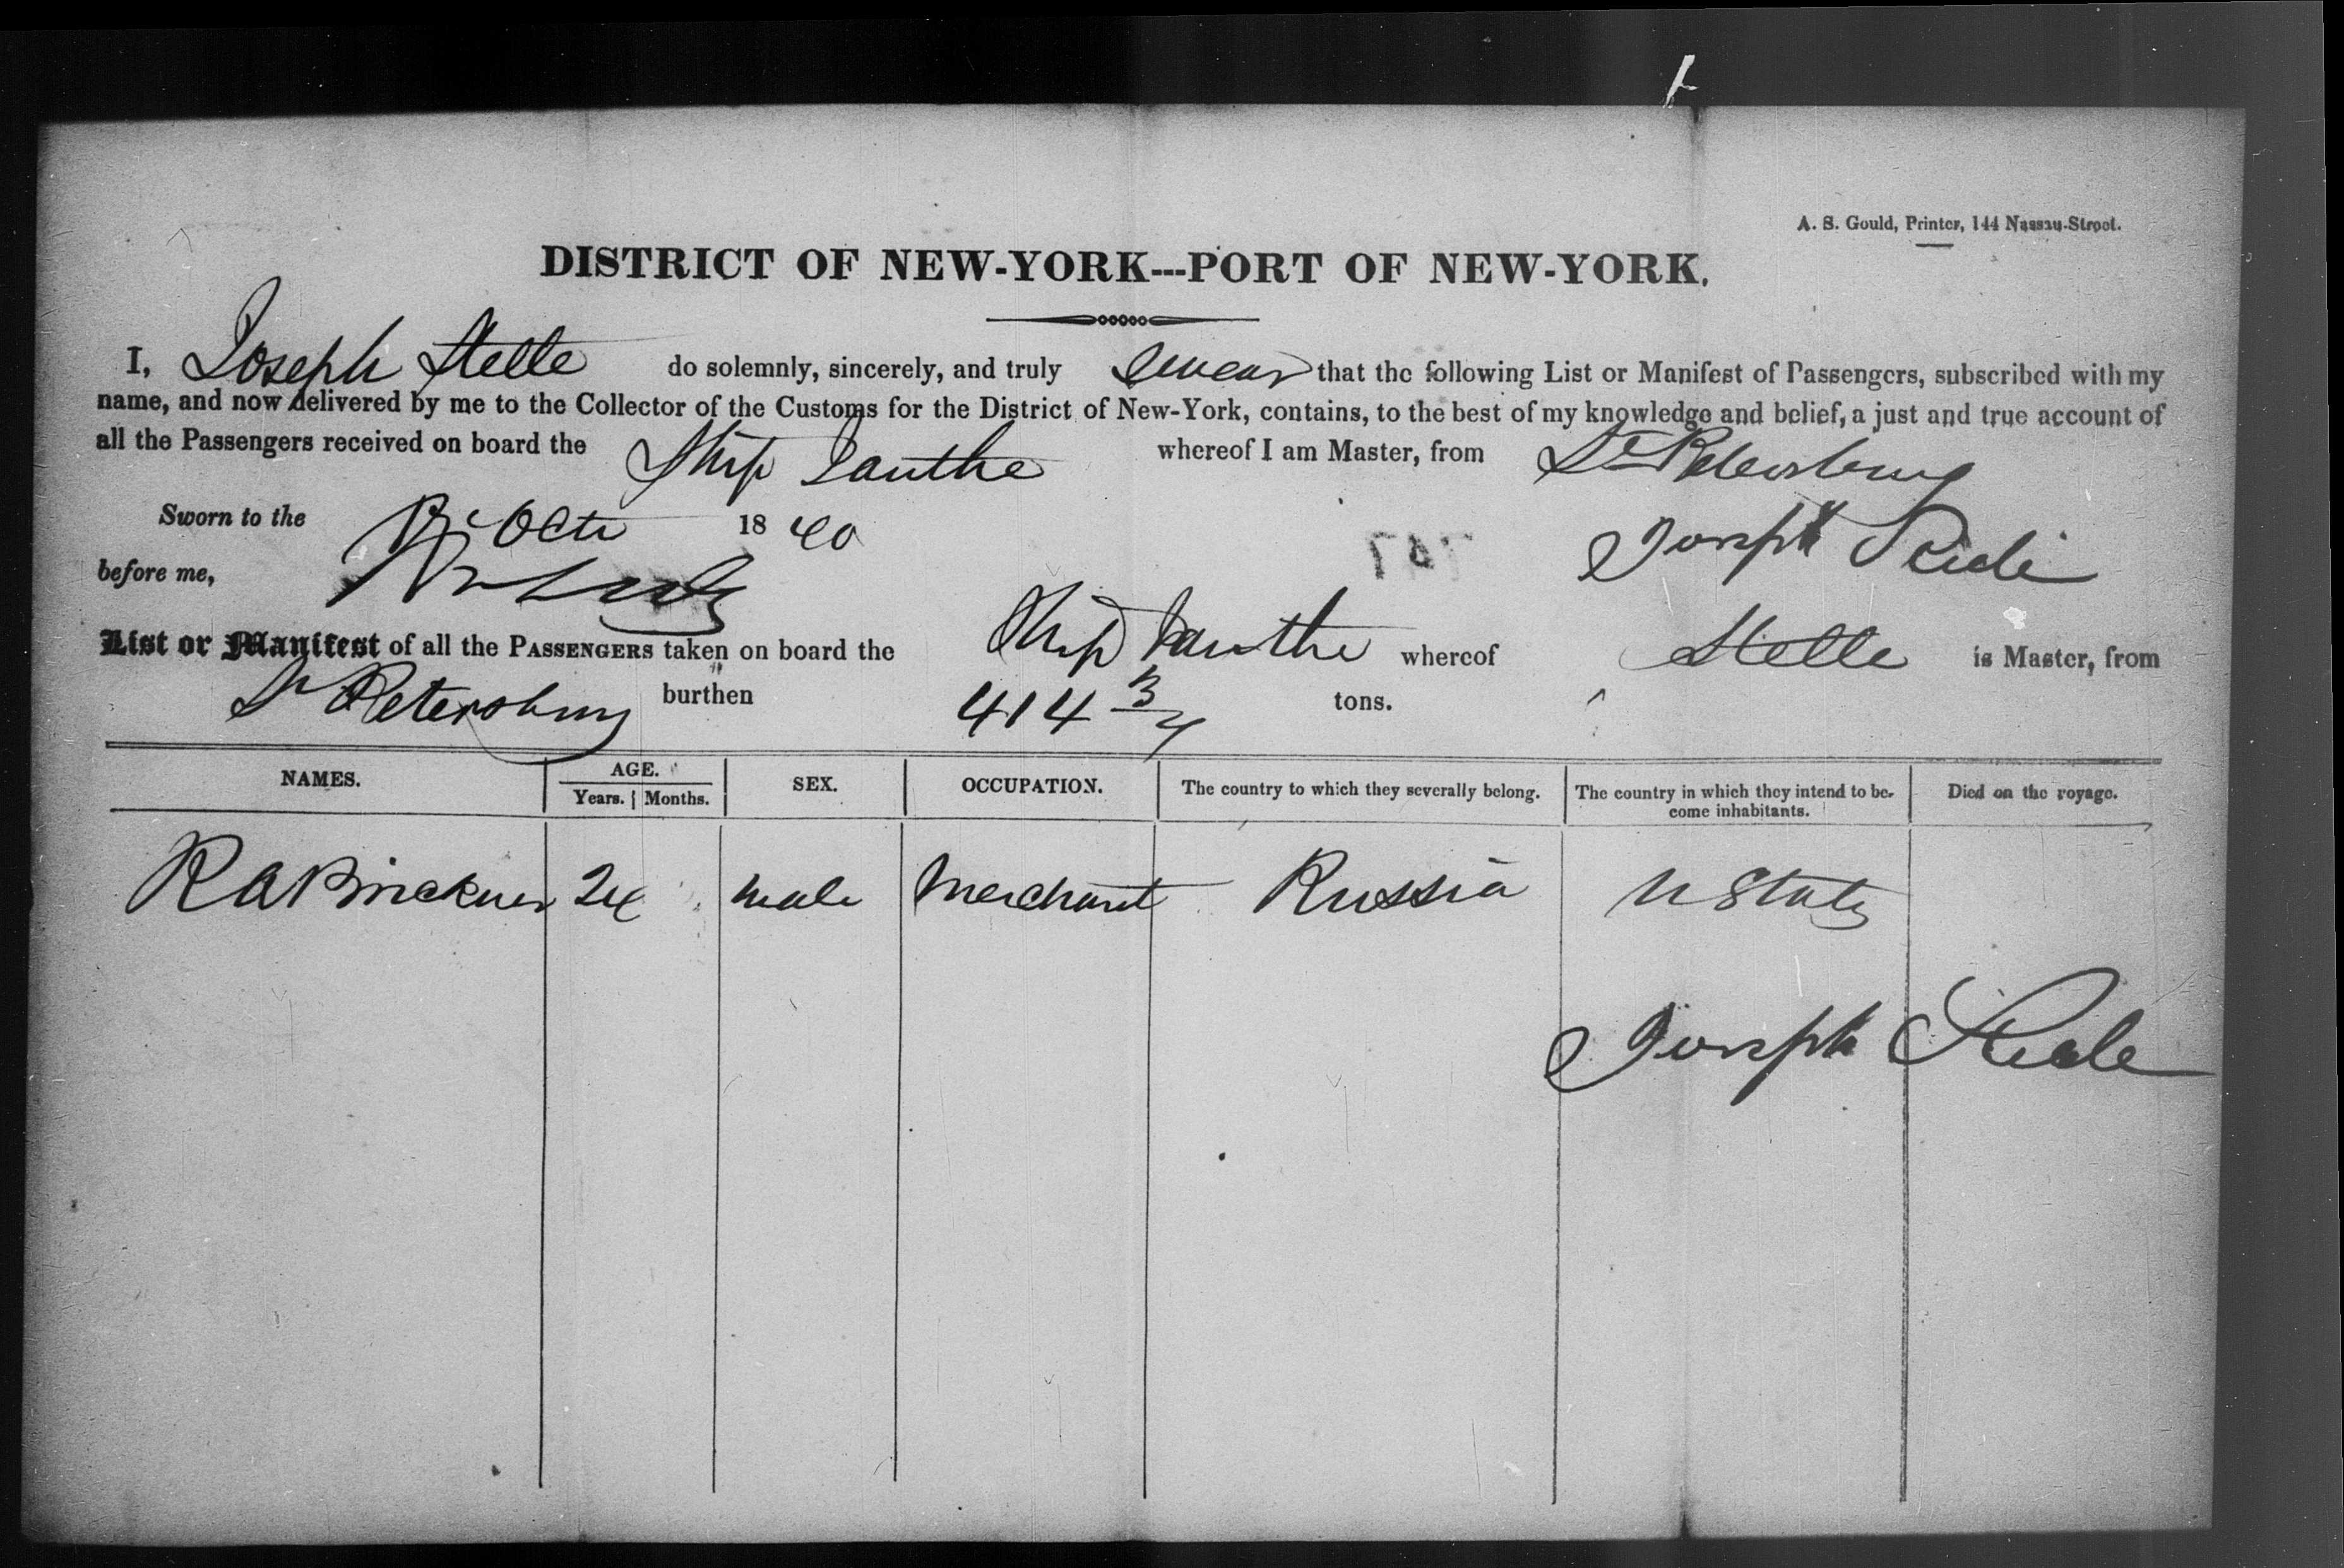 A. S. Gould, Printer, 144 Nassau-Street.
DISTRICT OF NEW-YORK---PORT OF NEW-YORK.
I, Joseph Stelle do solemnly, sincerely, and truly swear that the following List or Manifest of Passengers, subscribed with my
name, and now delivered by me to the Collector of the Customs for the District of New-York, contains, to the best of my knowledge and belief, a just and true account of
all the Passengers received on board the Ship Ianthe whereof I am Master, from St Petersburg
Sworn to the Octr 1840
Joseph
before me,
List or Manifest of all the PASSENGERS taken on board the Ship Ianthe whereof Stelle is Master, from
St Petersburg burthen 414 3/4 tons.
NAMES. AGE. SEX. OCCUPATION. The country to which they severally belong. The country in which they intend to be- Died on the voyage.
Years. Months. come inhabitants.
R A 24 male Merchant Russia U States
Joseph